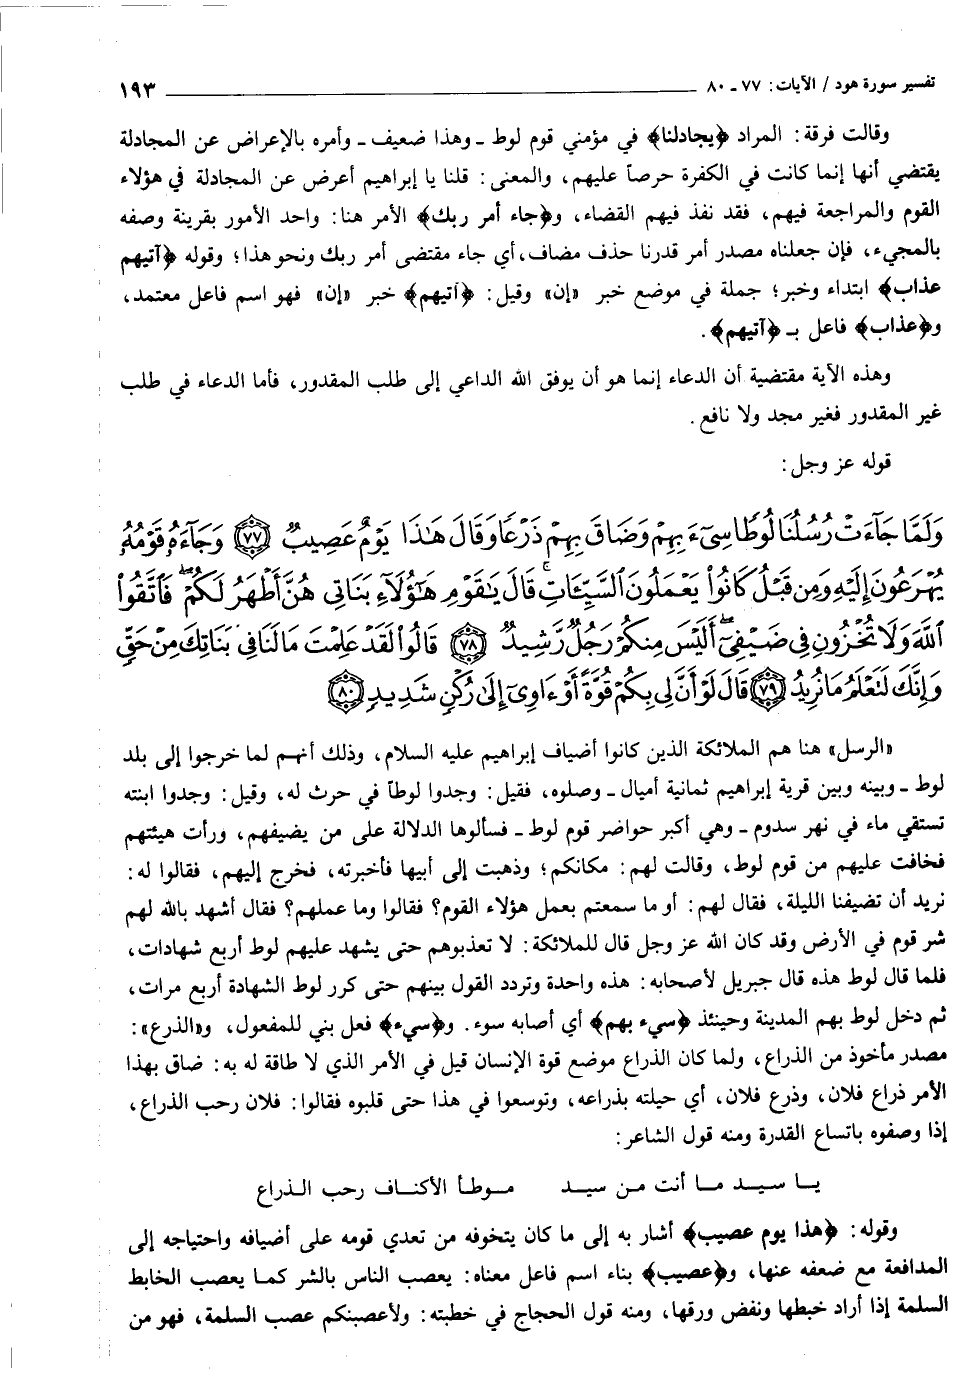 تفسير سورة هود / الآيات: ٧٧ ـ ٨٠ ١٩٣
وقالت فرقة: المراد ﴿يجادلنا﴾ في مؤمني قوم لوط ـ وهذا ضعيف ـ وأمره بالإعراض عن المجادلة
يقتضي أنها إنما كانت في الكفرة حرصاً عليهم، والمعنى: قلنا يا إبراهيم أعرض عن المجادلة في هؤلاء
القوم والمراجعة فيهم، فقد نفذ فيهم القضاء، و﴿جاء أمر ربك﴾ الأمر هنا: واحد الأمور بقرينة وصفه
بالمجيء، فإن جعلناه مصدر أمر قدرنا حذف مضاف، أي جاء مقتضى أمر ربك ونحو هذا؛ وقوله ﴿آتيهم
عذاب﴾ ابتداء وخبر؛ جملة في موضع خبر «إن» وقيل: ﴿آتيهم﴾ خبر «إن» فهو اسم فاعل معتمد،
و﴿عذاب﴾ فاعل بـ ﴿آتيهم﴾.
وهذه الآية مقتضية أن الدعاء إنما هو أن يوفق الله الداعي إلى طلب المقدور، فأما الدعاء في طلب
غير المقدور فغير مجد ولا نافع.
قوله عز وجل:
وَلَمَّا جَآءَتْ رُسُلُنَا لُوطًا سِيٓءَ بِهِمْ وَضَاقَ بِهِمْ ذَرْعًا وَقَالَ هَٰذَا يَوْمٌ عَصِيبٌ ٧٧ وَجَآءَهُۥ قَوْمُهُۥ
يُهْرَعُونَ إِلَيْهِ وَمِن قَبْلُ كَانُوا۟ يَعْمَلُونَ ٱلسَّيِّـَٔاتِ ۚ قَالَ يَٰقَوْمِ هَٰٓؤُلَآءِ بَنَاتِى هُنَّ أَطْهَرُ لَكُمْ ۖ فَٱتَّقُوا۟
ٱللَّهَ وَلَا تُخْزُونِ فِى ضَيْفِىٓ ۖ أَلَيْسَ مِنكُمْ رَجُلٌ رَّشِيدٌ ٧٨ قَالُوا۟ لَقَدْ عَلِمْتَ مَا لَنَا فِى بَنَاتِكَ مِنْ حَقٍّ
وَإِنَّكَ لَتَعْلَمُ مَا نُرِيدُ ٧٩ قَالَ لَوْ أَنَّ لِى بِكُمْ قُوَّةً أَوْ ءَاوِىٓ إِلَىٰ رُكْنٍ شَدِيدٍ ٨٠
«الرسل» هنا هم الملائكة الذين كانوا أضياف إبراهيم عليه السلام، وذلك أنهم لما خرجوا إلى بلد
لوط ـ وبينه وبين قرية إبراهيم ثمانية أميال ـ وصلوه، فقيل: وجدوا لوطاً في حرث له، وقيل: وجدوا ابنته
تستقي ماء في نهر سدوم ـ وهي أكبر حواضر قوم لوط ـ فسألوها الدلالة على من يضيفهم، ورأت هيئتهم
فخافت عليهم من قوم لوط، وقالت لهم: مكانكم؛ وذهبت إلى أبيها فأخبرته، فخرج إليهم، فقالوا له:
نريد أن تضيفنا الليلة، فقال لهم: أو ما سمعتم بعمل هؤلاء القوم؟ فقالوا وما عملهم؟ فقال أشهد بالله لهم
شر قوم في الأرض وقد كان الله عز وجل قال للملائكة: لا تعذبوهم حتى يشهد عليهم لوط أربع شهادات،
فلما قال لوط هذه قال جبريل لأصحابه: هذه واحدة وتردد القول بينهم حتى كرر لوط الشهادة أربع مرات،
ثم دخل لوط بهم المدينة وحينئذ ﴿سيء بهم﴾ أي أصابه سوء. و﴿سيء﴾ فعل بني للمفعول، و«الذرع»:
مصدر مأخوذ من الذراع، ولما كان الذراع موضع قوة الإنسان قيل في الأمر الذي لا طاقة له به: ضاق بهذا
الأمر ذراع فلان، وذرع فلان، أي حيلته بذراعه، وتوسعوا في هذا حتى قلبوه فقالوا: فلان رحب الذراع،
إذا وصفوه باتساع القدرة ومنه قول الشاعر:
يـا سـيـد مـا أنت مـن سيـد مـوطـأ الأكنـاف رحب الـذراع
وقوله: ﴿هذا يوم عصيب﴾ أشار به إلى ما كان يتخوفه من تعدي قومه على أضيافه واحتياجه إلى
المدافعة مع ضعفه عنها، و﴿عصيب﴾ بناء اسم فاعل معناه: يعصب الناس بالشر كما يعصب الخابط
السلمة إذا أراد خبطها ونفض ورقها، ومنه قول الحجاج في خطبته: ولأعصبنكم عصب السلمة، فهو من